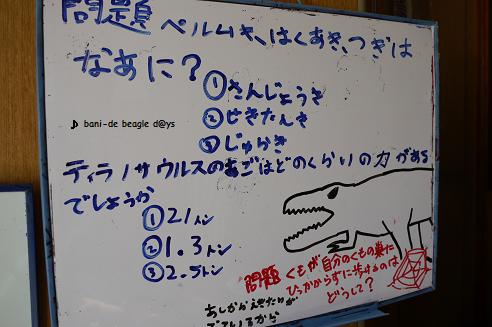 問題 ペルムき、はくあき、つぎは
なあに?
①さんじょうき
②せきたんき
③じゅらき
♪ bani-de beagle d@ys
ティラノサウルスのあごはどのくらいの力がある
でしょうか
①21トン
②1.3トン
③2.5トン
問題 くもが自分のくもの巣に
ひっかからずに歩けるのは
どうして?